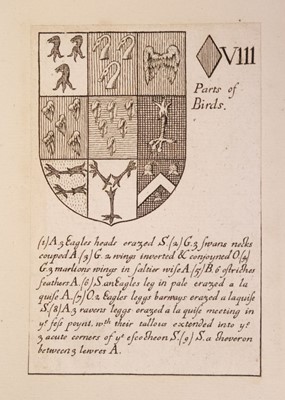 VIII
Parts of
Birds.
(1) A. 3 Eagles heads erazed S. (2) G. 3 swans necks
coupod A. (3) G. 2 wings inverted & conjoyned O. (4)
G. 3 martions wings in saltier wise A. (5) B. 6 ostriches
feathers A. (6) S. an Eagles leg in pale erazed a la
quise A. (7) O. 2 Eagles leggs barways erazed a laquise
S. (8) A. 3 ravens leggs erazed a la quise meeting in
yᵉ fess poynt. wᵗʰ their tallons extended into yᵉ
3 acute corners of yᵉ escocheon S. (9) S. a cheveron
between 3 lewres A.